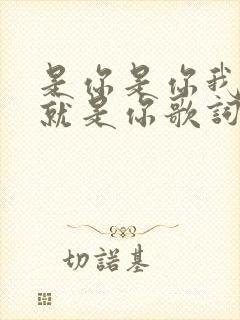 是你是你我
就是你歌詞
切諾基